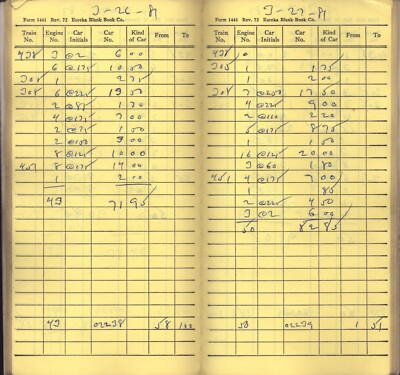 3-26-81
Form 1441 Rev. 72 Eureka Blank Book Co.
Train No. Engine No. Car Initials Car No. Kind of Car From To
438 3 @2 6 00
6 @175 10 50
308 1 2 75
308 6 @225 13 50
2 @85 1 70
4 @175 7 00
2 @75 1 50
2 @150 3 00
8 @125 10 00
8 @175 14 00
1 2 00
43 71 95
43 02238 58 100
Form 1441 Rev. 72 Eureka Blank Book Co.
Train No. Engine No. Car Initials Car No. Kind of Car From To
3-27-81
438 10
1 1 75
1 2 00
308 7 @250 17 50
4 @225 9 00
2 @110 2 20
5 @175 8 75
1 1 50
16 @125 20 00
3 @60 1 80
451 4 @175 7 00
1 85
2 @225 4 50
3 @2 6 00
50 82 85
50 02239 1 51